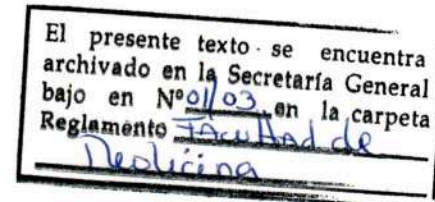 El presente texto se encuentra
archivado en la Secretaría General
bajo en Nº 01/03 en la carpeta
Reglamento Facultad de
Medicina